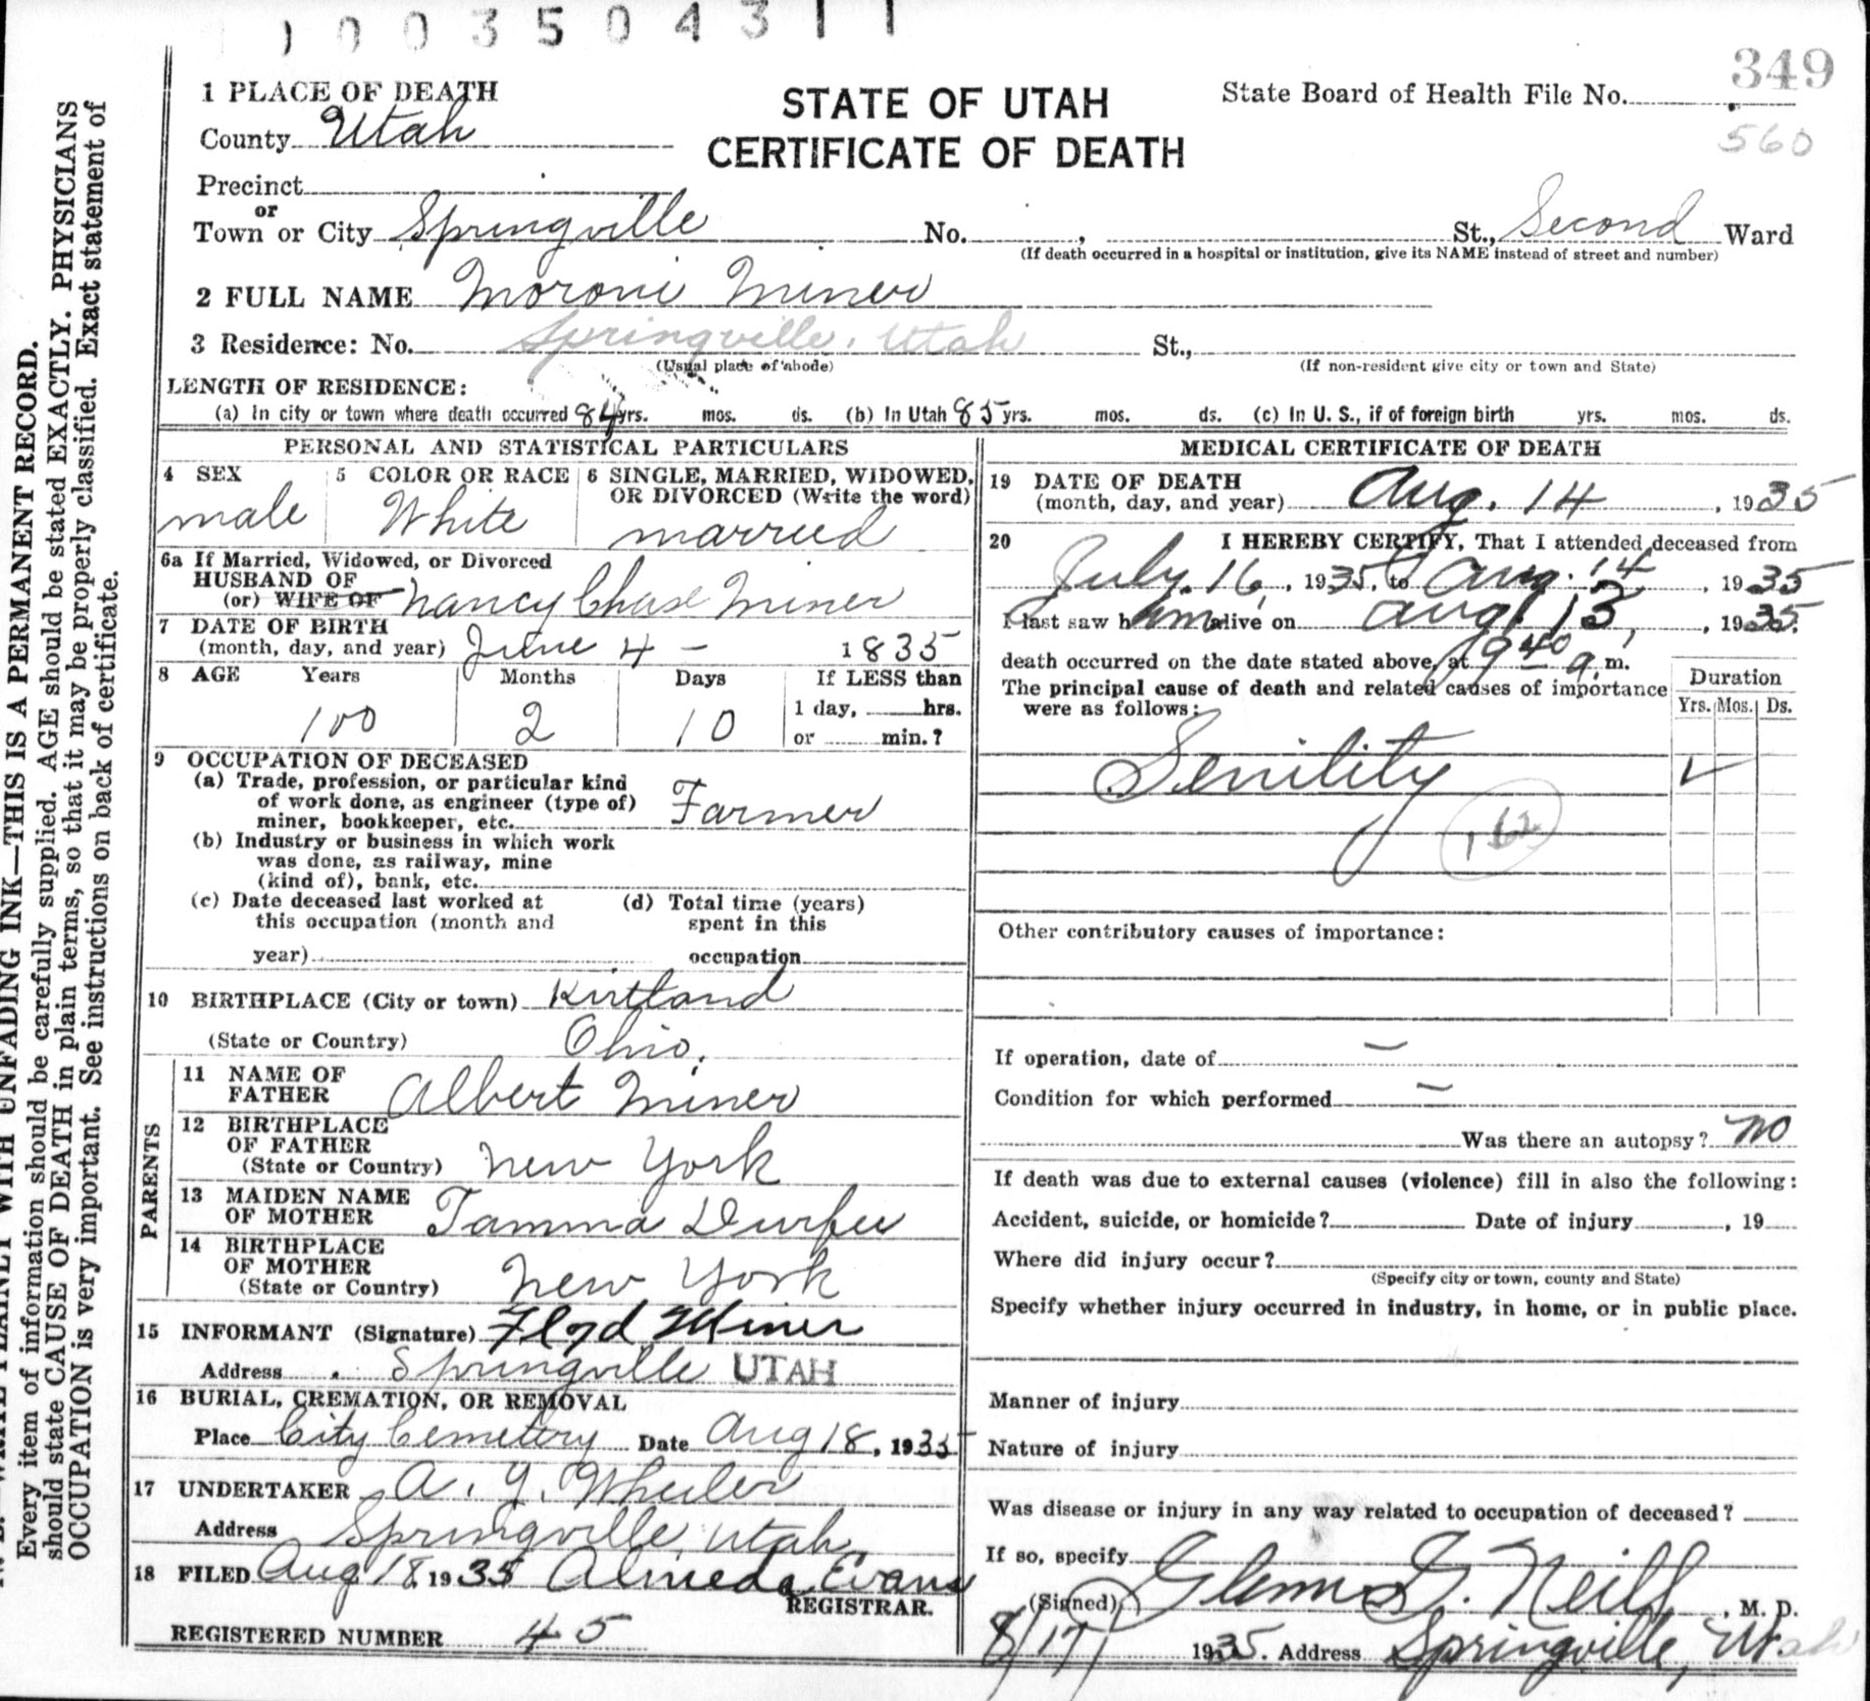 1003504311
349
1 PLACE OF DEATH
STATE OF UTAH
State Board of Health File No.
County Utah
CERTIFICATE OF DEATH
560
Precinct
or
Town or City Springville No. , St., Second Ward
(If death occurred in a hospital or institution, give its NAME instead of street and number)
2 FULL NAME Moroni Miner
3 Residence: No. Springville, Utah St.,
(Usual place of abode) (If non-resident give city or town and State)
LENGTH OF RESIDENCE:
(a) In city or town where death occurred 84 yrs. mos. ds. (b) In Utah 85 yrs. mos. ds. (c) In U. S., if of foreign birth yrs. mos. ds.
PERSONAL AND STATISTICAL PARTICULARS
4 SEX 5 COLOR OR RACE 6 SINGLE, MARRIED, WIDOWED,
OR DIVORCED (Write the word)
male White married
6a If Married, Widowed, or Divorced
HUSBAND OF
(or) WIFE OF Nancy Chase Miner
7 DATE OF BIRTH
(month, day, and year) June 4 - 1835
8 AGE Years Months Days If LESS than
1 day, hrs.
100 2 10 or min.?
9 OCCUPATION OF DECEASED
(a) Trade, profession, or particular kind
of work done, as engineer (type of)
miner, bookkeeper, etc. Farmer
(b) Industry or business in which work
was done, as railway, mine
(kind of), bank, etc.
(c) Date deceased last worked at (d) Total time (years)
this occupation (month and spent in this
year) occupation
10 BIRTHPLACE (City or town) Kirtland
(State or Country) Ohio.
PARENTS
11 NAME OF
FATHER Albert Miner
12 BIRTHPLACE
OF FATHER
(State or Country) New York
13 MAIDEN NAME
OF MOTHER Tamma Durfee
14 BIRTHPLACE
OF MOTHER
(State or Country) New York
15 INFORMANT (Signature) Floyd Miner
Address Springville UTAH
16 BURIAL, CREMATION, OR REMOVAL
Place City Cemetery Date Aug 18, 1935
17 UNDERTAKER A. Y. Wheeler
Address Springville, Utah
18 FILED Aug 18, 1935 Almeda Evans
REGISTRAR.
REGISTERED NUMBER 45
MEDICAL CERTIFICATE OF DEATH
19 DATE OF DEATH
(month, day, and year) Aug. 14, 1935
20 I HEREBY CERTIFY, That I attended deceased from
July 16, 1935, to Aug. 14, 1935
I last saw h im alive on Aug. 13, 1935.
death occurred on the date stated above, at 9 40 a m.
The principal cause of death and related causes of importance
were as follows:
Duration
Yrs. Mos. Ds.
Senility
162
Other contributory causes of importance:
If operation, date of –
Condition for which performed –
Was there an autopsy? No
If death was due to external causes (violence) fill in also the following:
Accident, suicide, or homicide? Date of injury , 19
Where did injury occur?
(Specify city or town, county and State)
Specify whether injury occurred in industry, in home, or in public place.
Manner of injury
Nature of injury
Was disease or injury in any way related to occupation of deceased?
If so, specify
(Signed) Glenn G. Neill, M. D.
8/17/ 1935. Address Springville, Utah
Every item of information should be carefully supplied. AGE should be stated EXACTLY. PHYSICIANS
should state CAUSE OF DEATH in plain terms, so that it may be properly classified. Exact statement of
OCCUPATION is very important. See instructions on back of certificate.
WITH UNFADING INK—THIS IS A PERMANENT RECORD.